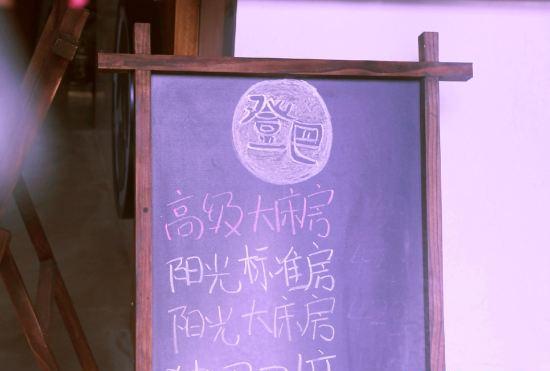 登巴
高级大床房
阳光标准房
阳光大床房